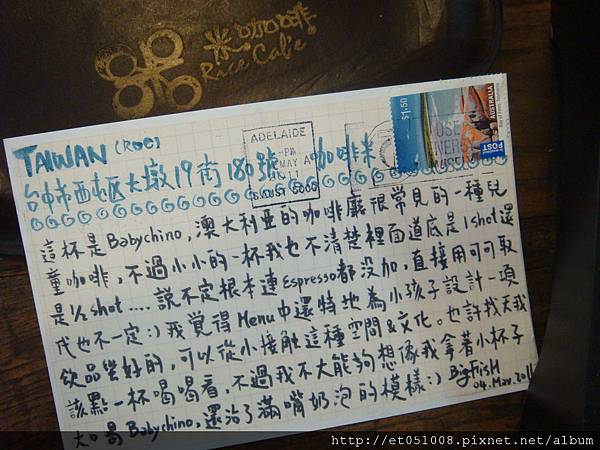 米咖啡
Rice Cafe
TAIWAN (ROC)
台中市西屯区大墩19街180號 咖啡米
ADELAIDE
-PM
MAY
11
SA AUST 5000
$1.50
AUSTRALIA
POST
USE
這杯是Babychino,澳大利亚的咖啡廳很常見的一種兒
童咖啡,不過小小的一杯我也不清楚裡面道底是1shot還
是½shot....說不定根本連Espresso都没加,直接用可可取
代也不一定:)我覺得Menu中還特地為小孩子設計一項
飲品蛮好的,可以從小接触這種空間&文化。也許找天我
該點一杯喝喝看,不過我不大能夠想像我拿著小杯子
大口喝Babychino,還沾了滿嘴奶泡的模樣:)
BigFisH
04.May.2011
http://et051008.pixnet.net/album